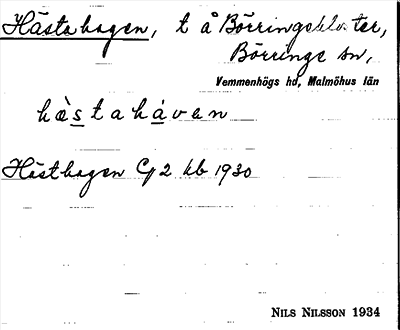 Hästahagen, t å Börringekloster,
Börringe sn,
Vemmenhögs hd, Malmöhus län
hæ̀stahá̱ven
Hästhagen G 2 kb 1930
NILS NILSSON 1934